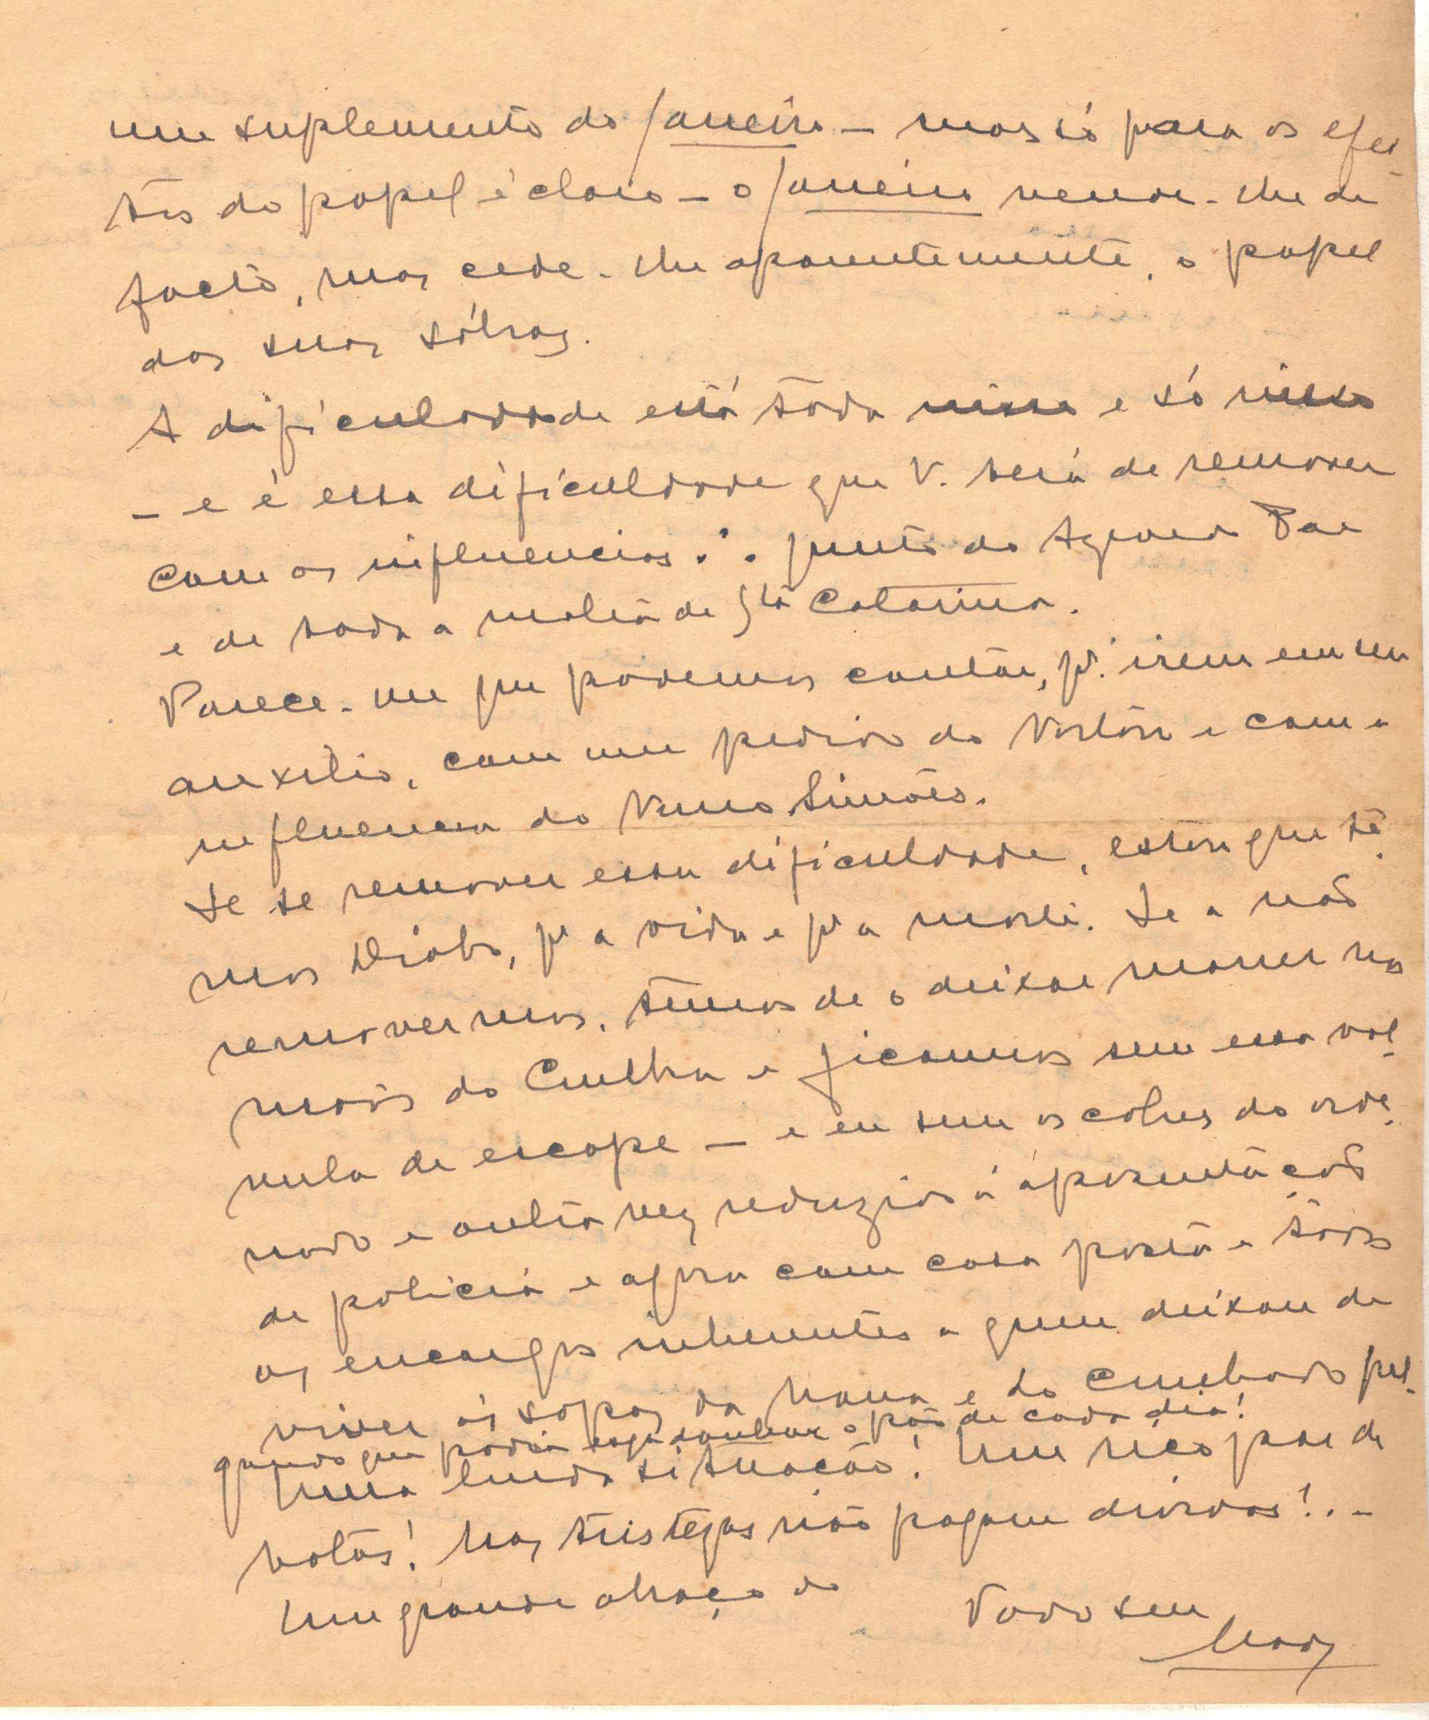 um suplemento do Janeiro — mas só para os efei-
tos do papel é claro — o Janeiro vende-lhe de
facto, mas cede-lhe aparentemente, o papel
das suas sóbras.
A dificuldade está tôda nisso e só nisso
— e é essa dificuldade que V. terá de remover
com as influencias ∴ junto do
e de toda a malta de Sta Catarina.
Parece-me que podemos contar, pa irem em seu
auxilio, com um pedido do e com a
influencia do Nuno Simões.
Se se remover essa dificuldade, estou que tê-
mos Diabo, pa a vida e pa a morte. Se a não
removermos, têmos de o deixar morrer nas
mãos do Cunha e ficamos sem essa val-
vula de escape — e eu sem os cobres do orde-
nado e outra vez reduzido á aposentação
de policia e agora com casa posta e tôdos
os encargos inherentes a quem deixou de
viver ás sopas da Mana e do Cunhado
quando que podia o pão de cada dia!
Uma linda situação! Um rico par de
botas! Mas tristezas não pagam dividas!..–
Um grande abraço do
Todo seu